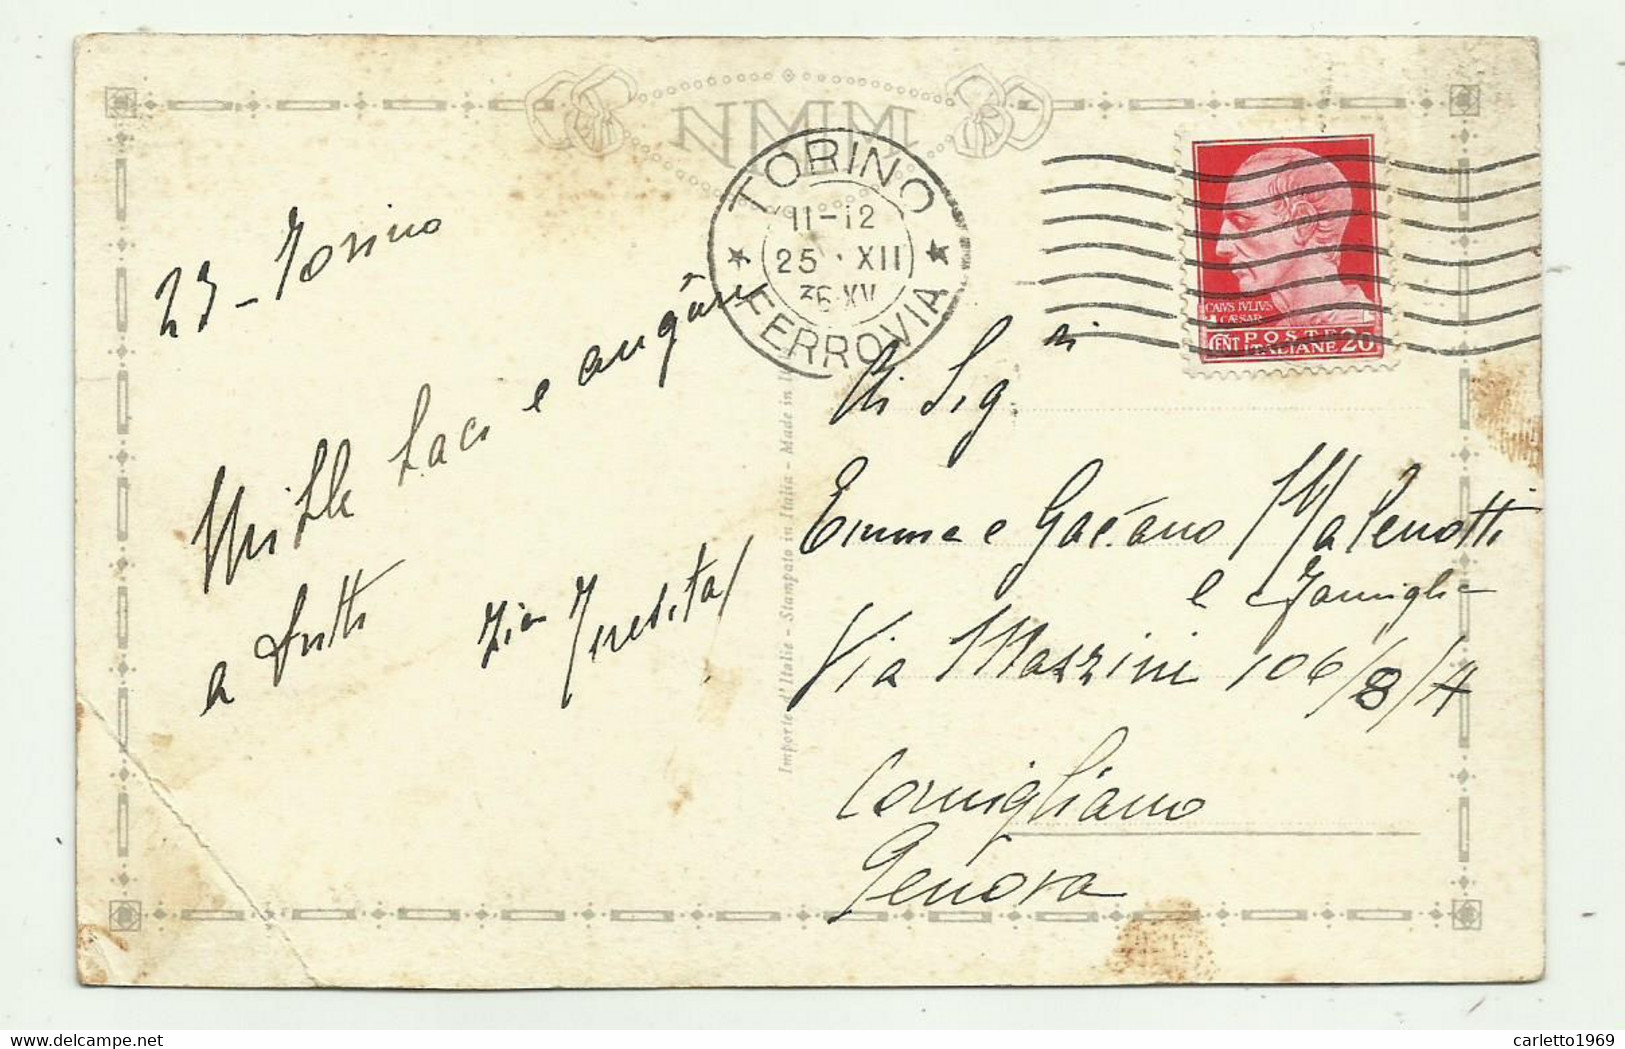 NMM
TORINO
11-12
25 · XII
36·XV
FERROVIA
CAIVS IVLIVS
CÆSAR
CENT POSTE 20
ITALIANE
23 - Torino
Mille baci e auguri
a tutti
Zia
Importé d'Italie - Stampato in Italia - Made in
Ai Sig.ri
Emma e Gaetano Malenotti
e Famiglia
Via Mazzini 106/8/A
Cornigliano
Genova
carletto1969